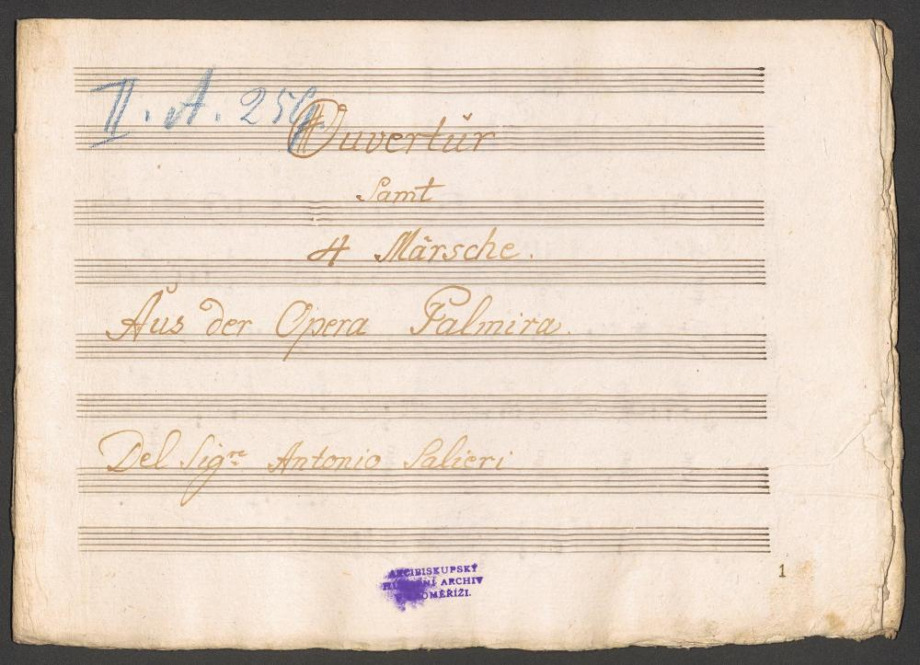 II. A. 250
Ouvertür
Samt
4 Märsche.
Aus der Opera Palmira.
Del Sig:re Antonio Salieri
ARCIBISKUPSKÝ
HUDEBNÍ ARCHIV
KROMĚŘÍŽI.
1